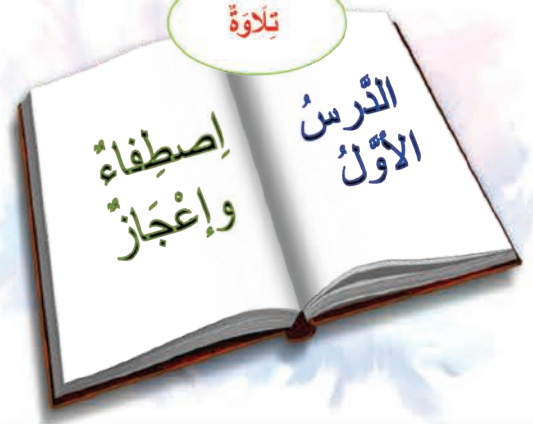 تِلَاوَةٌ
الدَّرسُ
الأَوَّلُ
اِصطِفاءٌ
وإعْجَازٌ